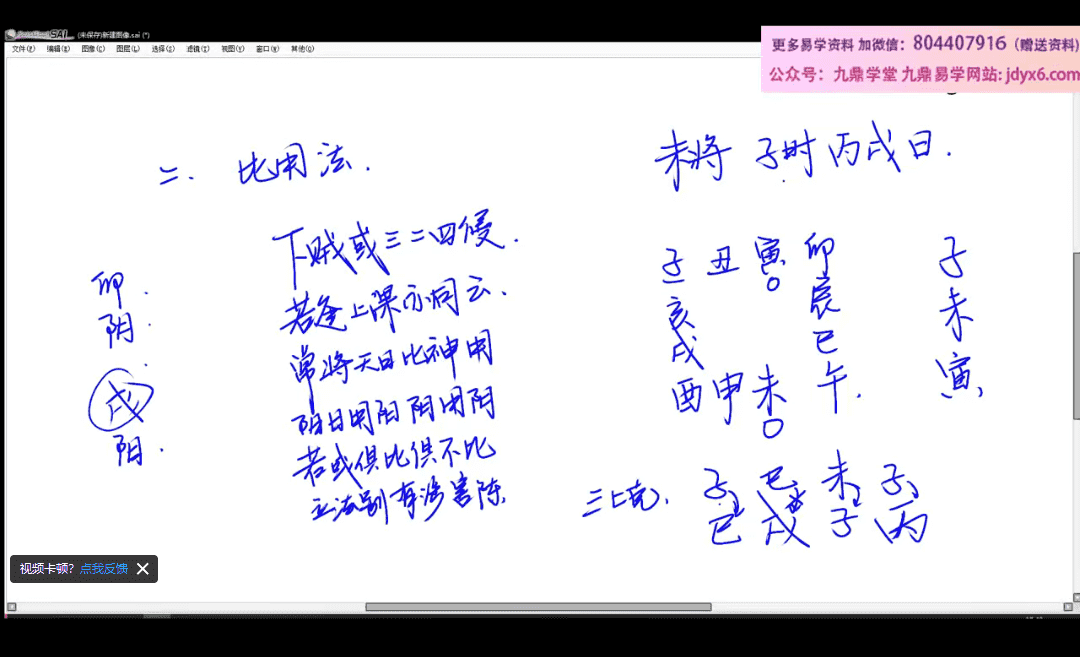 (未保存)新建图像.sai (*)
文件(F) 编辑(E) 图像(C) 图层(L) 选择(S) 滤镜(T) 视图(V) 窗口(W) 其他(O)
更多易学资料 加微信：804407916（赠送资料）
公众号：九鼎学堂 九鼎易学网站: jdyx6.com
二. 比用法.
下贼或三二四侵.
若逢上克亦同云.
常将天日比神用
阳日用阳阴用阴
若或俱比俱不比
立法别有涉害陈.
卯.
阴.
戌
阳.
未将 子时 丙戌日.
子 丑 寅 卯
亥 辰
戌 巳
酉 申 未 午.
子
未
寅,
三上克.
子 巳 未 子
巳 戌 子 丙
视频卡顿? 点我反馈